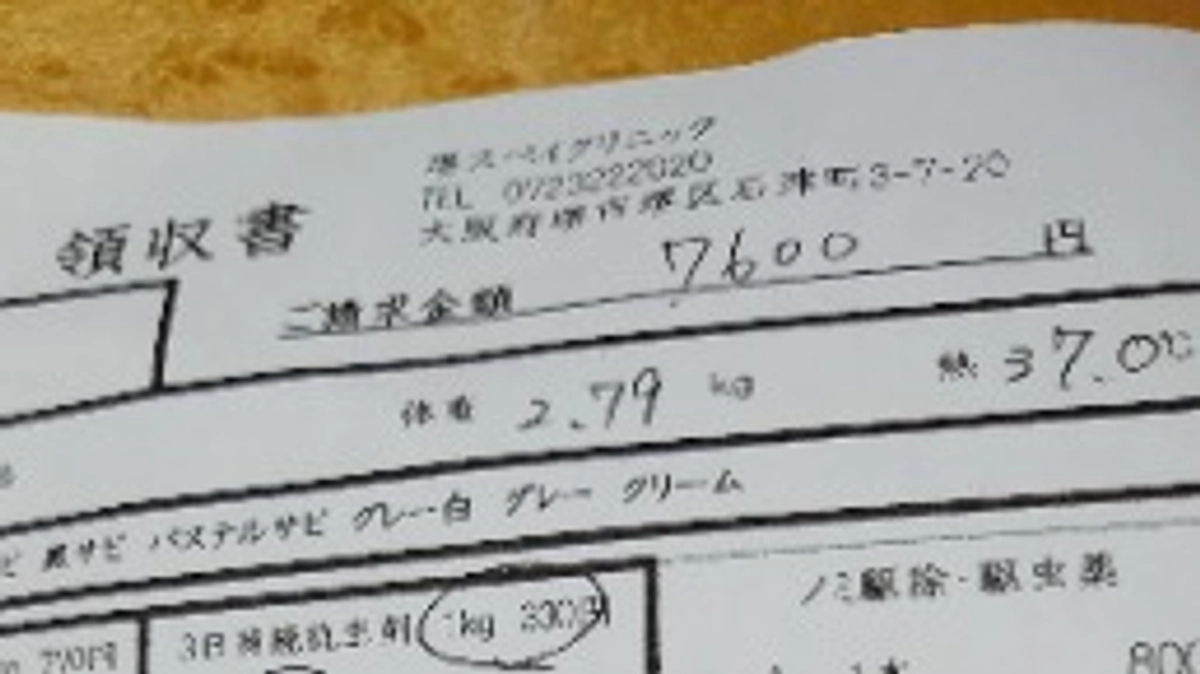 堺スペイクリニック
TEL 0723222020
大阪府堺市堺区石津町3-7-20
領収書
ご請求金額 7600 円
体重 2.79 kg 熱 37.0℃
黒サビ パステルサビ グレー白 グレー クリーム
ノミ駆除・駆虫薬
770円 3日持続抗生剤 1kg 330円
800